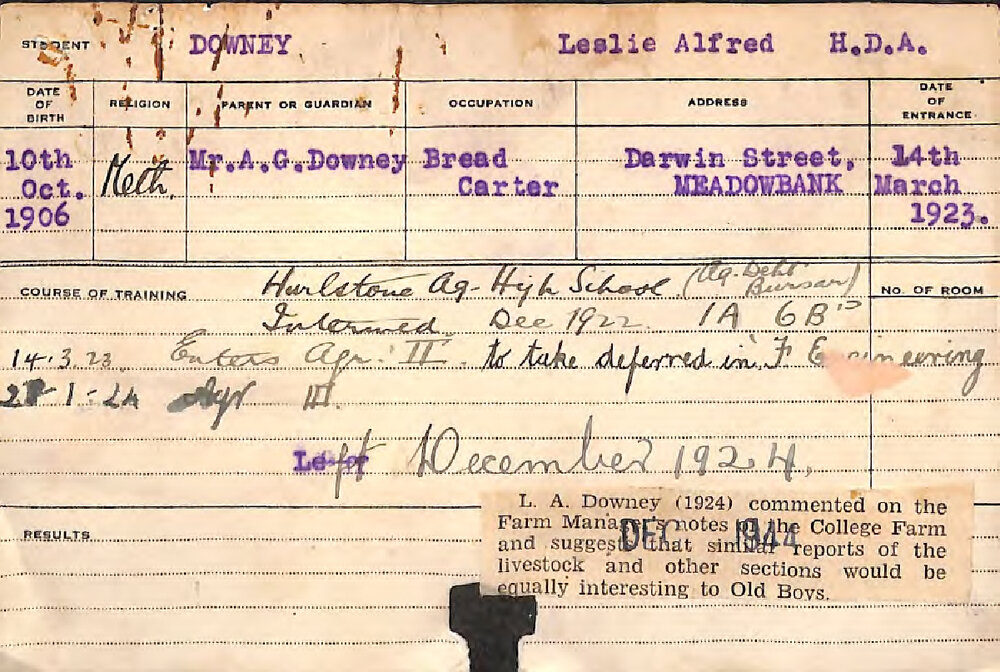 STUDENT DOWNEY Leslie Alfred H.D.A.
DATE OF BIRTH RELIGION PARENT OR GUARDIAN OCCUPATION ADDRESS DATE OF ENTRANCE
10th Meth. Mr.A.G.Downey Bread Darwin Street, 14th
Oct. Carter MEADOWBANK March
1906 1923.
COURSE OF TRAINING Hurlstone Ag. High School (Ag. Dept. Bursar) No. OF ROOM
Intermed. Dec 1922. 1A 6B's
14.3.23. Enters Agr. II. to take deferred in F Engineering
1-24 Agr III.
Left December 1924.
RESULTS
L. A. Downey (1924) commented on the
Farm Manager's notes the College Farm
and suggests that similar reports of the
livestock and other sections would be
equally interesting to Old Boys.
DEC 1944